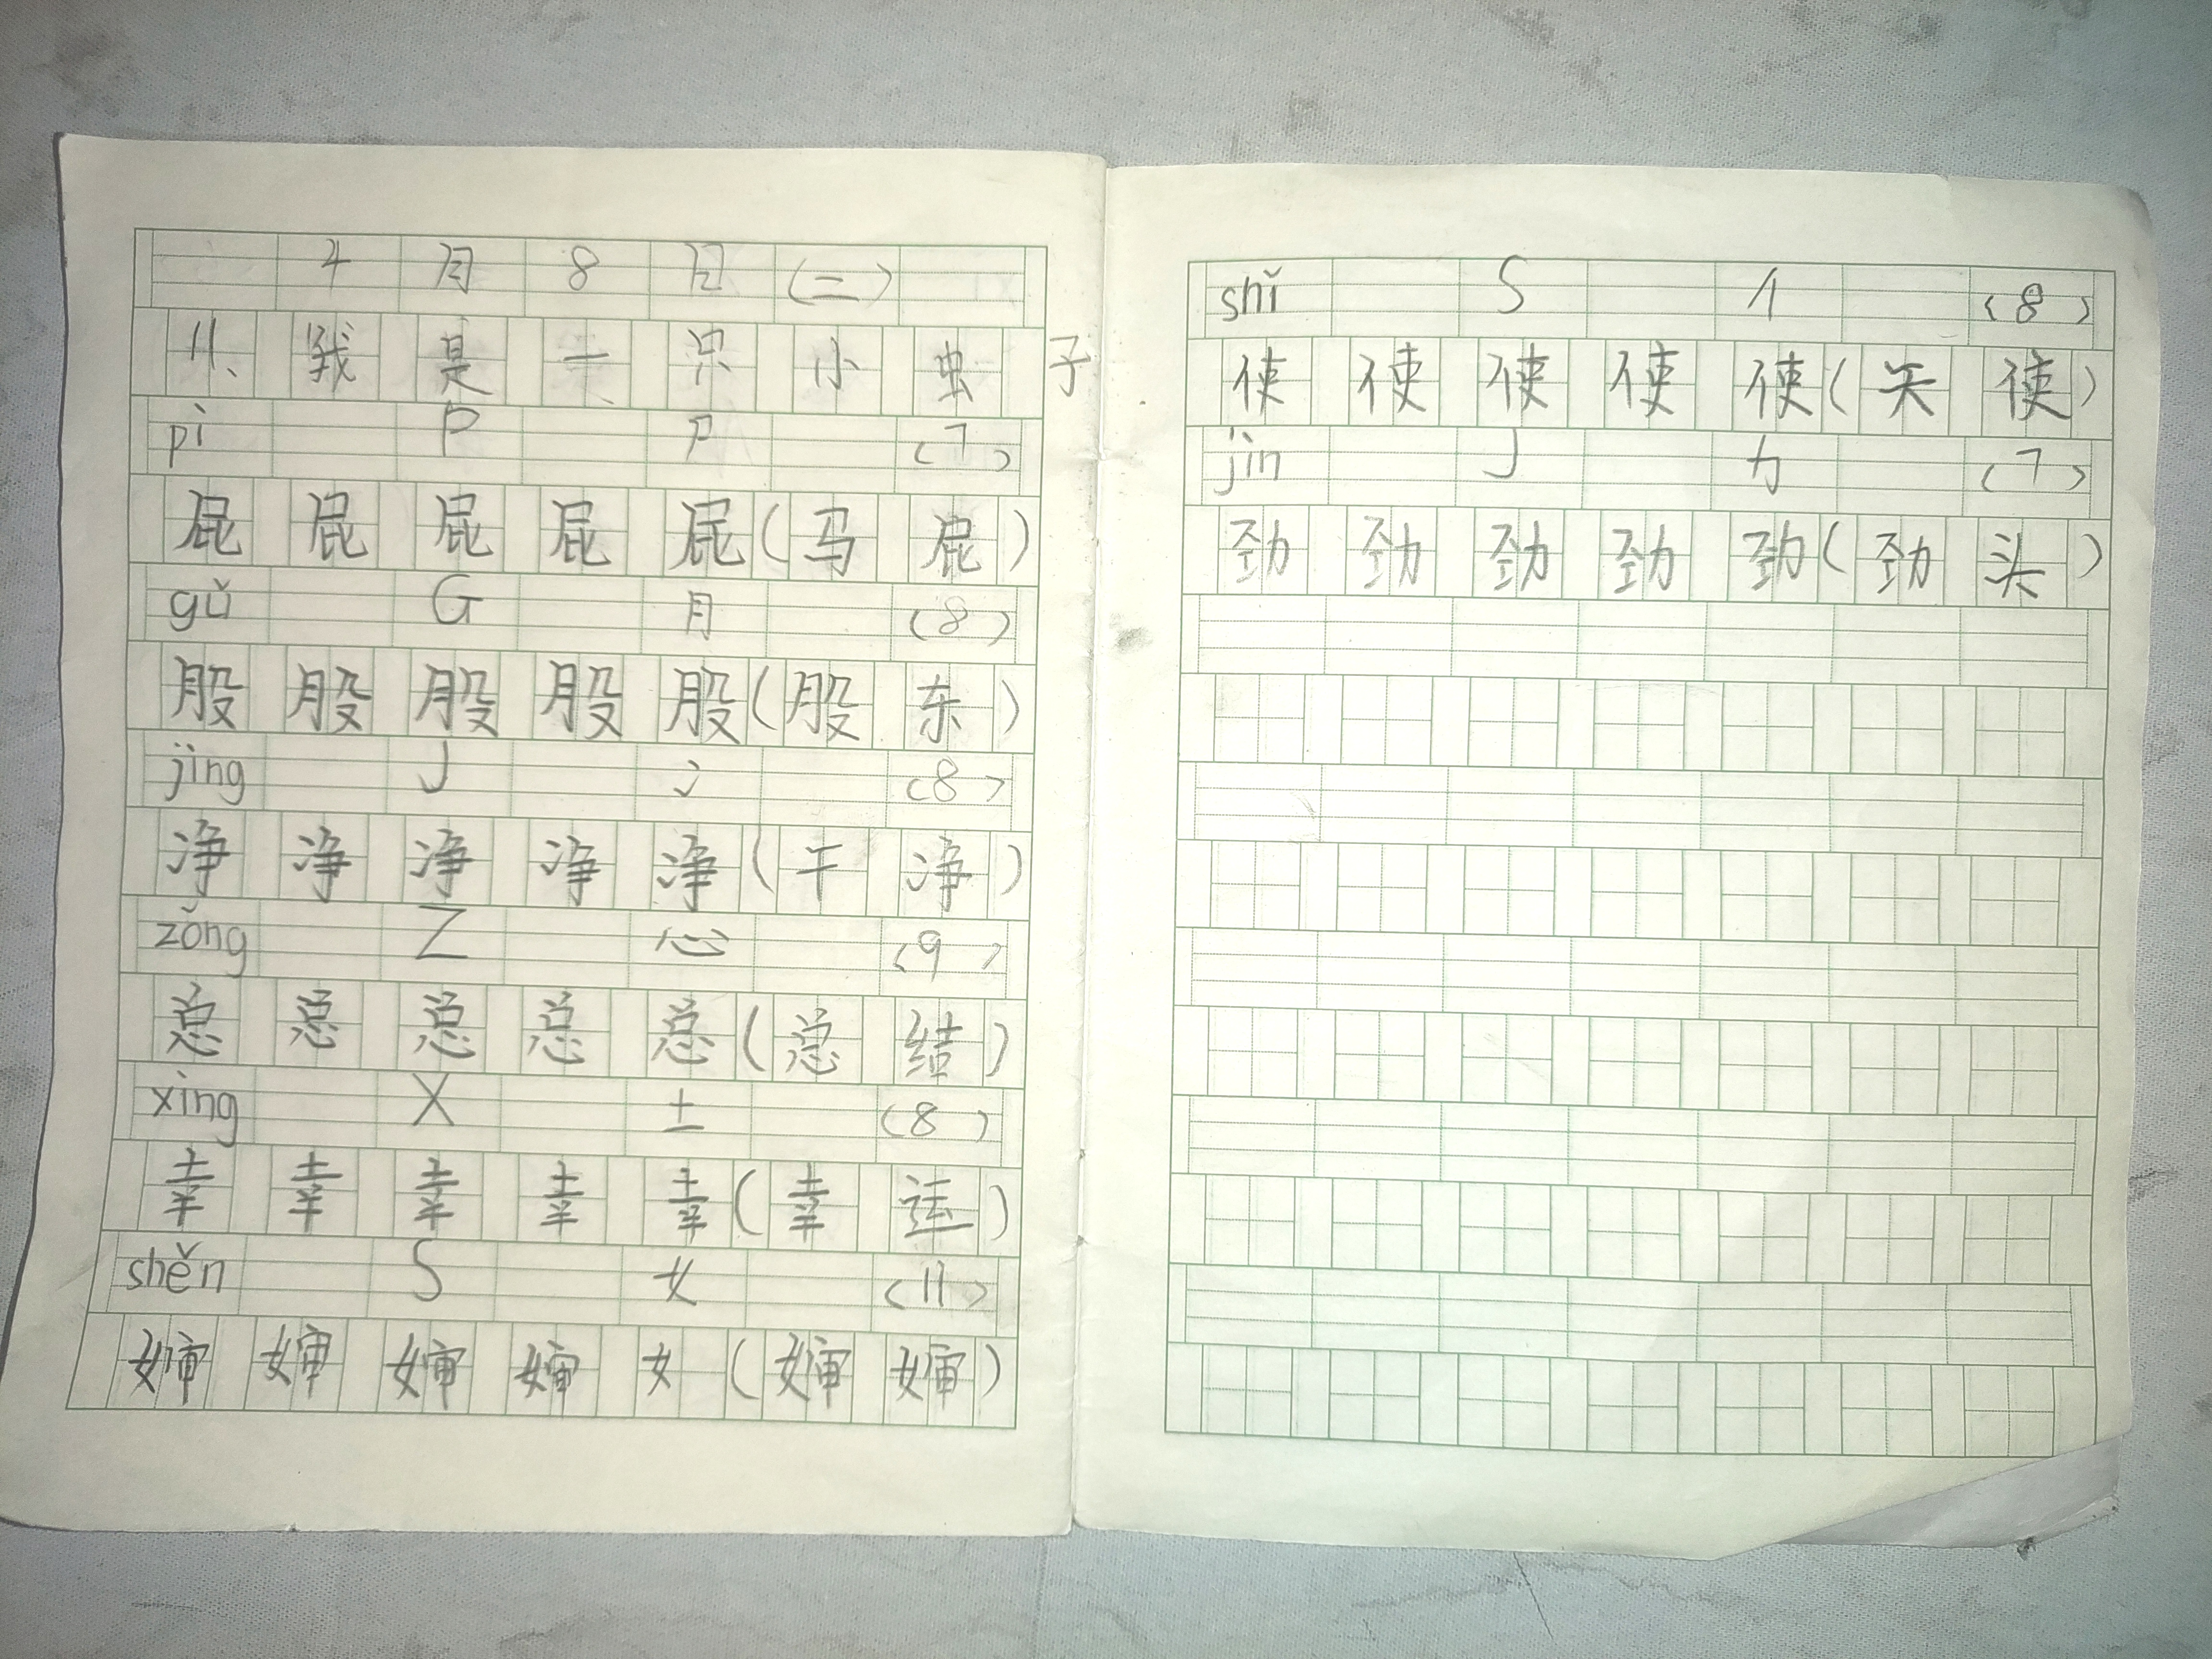 4月8日(二)
11、我是一只小虫子
pì P 尸 (7)
屁屁屁屁屁(马屁)
gǔ G 月 (8)
股股股股股(股东)
jìng J 冫 (8)
净净净净净(干净)
zǒng Z 心 (9)
总总总总总(总结)
xìng X 土 (8)
幸幸幸幸幸(幸运)
shěn S 女 (11)
婶婶婶婶女(婶婶)
shǐ S 亻 (8)
使使使使使(天使)
jìn J 力 (7)
劲劲劲劲劲(劲头)